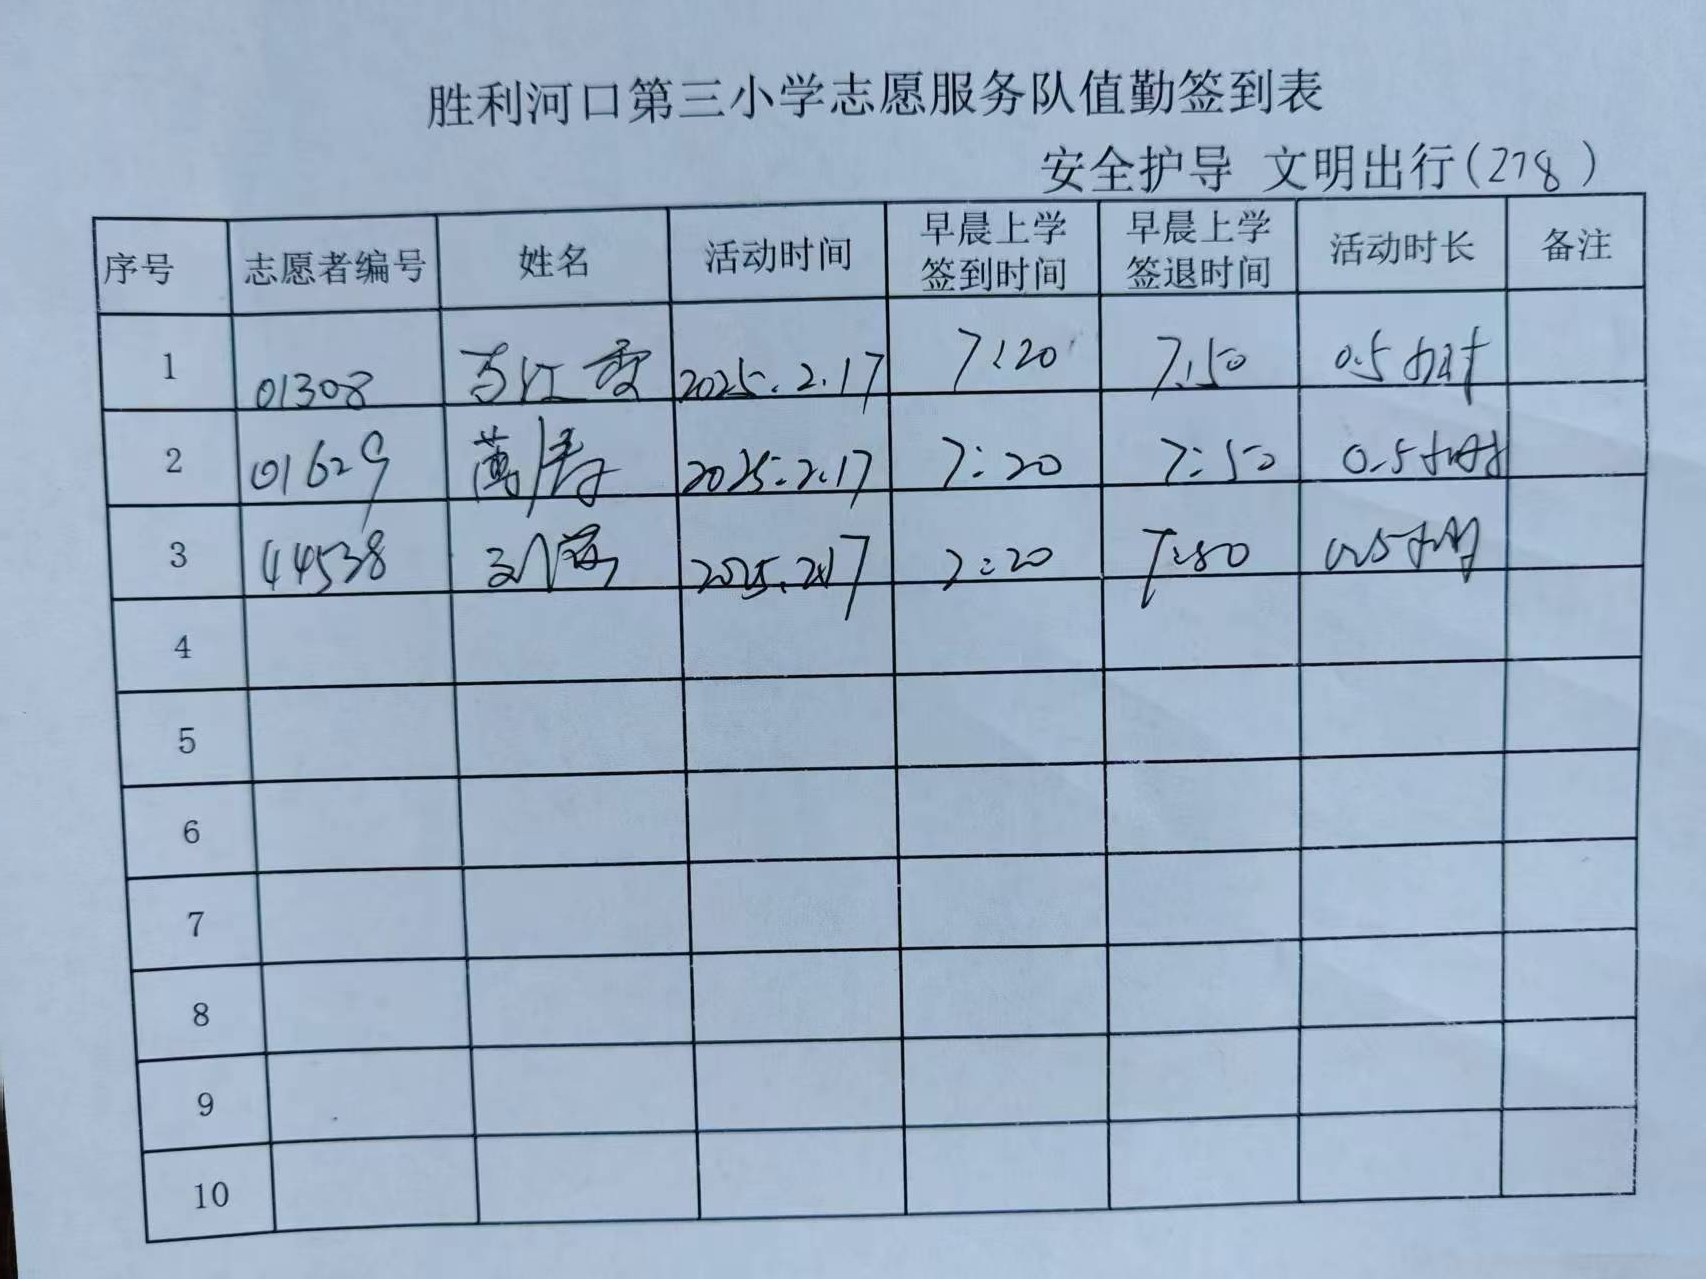 胜利河口第三小学志愿服务队值勤签到表
安全护导 文明出行(278)
序号 志愿者编号 姓名 活动时间 早晨上学签到时间 早晨上学签退时间 活动时长 备注
1 01308 2025.2.17 7:20 7:50 0.5小时
2 01629 2025.2.17 7:20 7:50 0.5小时
3 44538 2025.2.17 7:20 7:50 0.5小时
4
5
6
7
8
9
10